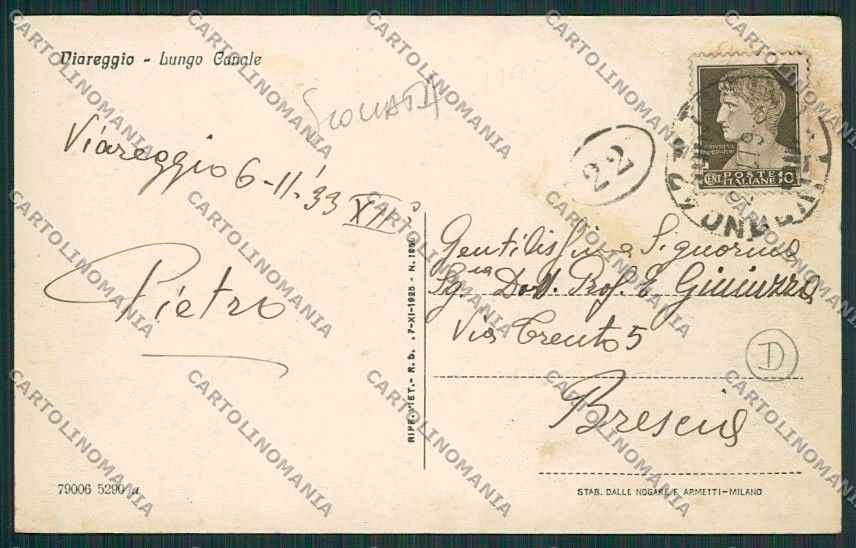 Viareggio - Lungo Canale
SCOLLATA
1192
Viareggio 6-11-'33 XII°
Pietro
22
CENT. POSTE 10
ITALIANE
Gentilissima Signorina
Sg.na Dott. Prof. E.
Via Trento 5
D
Brescia
RIPR. VIET. - R. b. .7-XI-1925 - N.
79006 5290 a
STAB. DALLE NOGARE E ARMETTI - MILANO
CARTOLINOMANIA